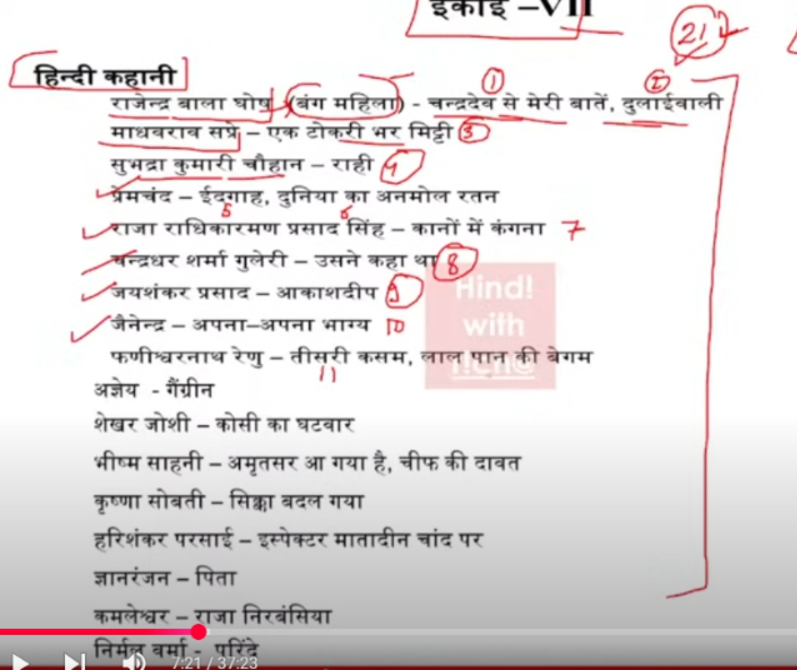 इकाई –VII
21
हिन्दी कहानी
1 2
राजेन्द्र बाला घोष (बंग महिला) - चन्द्रदेव से मेरी बातें, दुलाईवाली
माधवराव सप्रे – एक टोकरी भर मिट्टी 3
सुभद्रा कुमारी चौहान – राही 4
प्रेमचंद – ईदगाह, दुनिया का अनमोल रतन
5 6
राजा राधिकारमण प्रसाद सिंह – कानों में कंगना 7
चन्द्रधर शर्मा गुलेरी – उसने कहा था 8
जयशंकर प्रसाद – आकाशदीप 9
जैनेन्द्र – अपना–अपना भाग्य 10
फणीश्वरनाथ रेणु – तीसरी कसम, लाल पान की बेगम
11
अज्ञेय - गैंग्रीन
शेखर जोशी – कोसी का घटवार
भीष्म साहनी – अमृतसर आ गया है, चीफ की दावत
कृष्णा सोबती – सिक्का बदल गया
हरिशंकर परसाई – इस्पेक्टर मातादीन चांद पर
ज्ञानरंजन – पिता
कमलेश्वर – राजा निरबंसिया
निर्मल वर्मा - परिंदे
Hind!
with
7:21 / 37:23